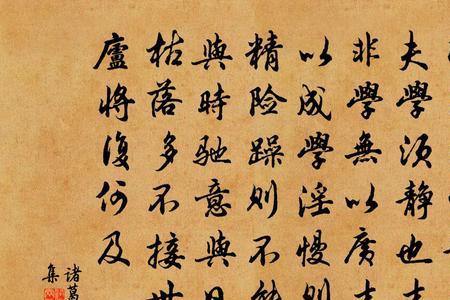 夫學须靜也
非學無以廣
以成學淫慢則
精险躁則不能
與時驰意與日
枯落多不接世
廬將復何及
諸葛
集